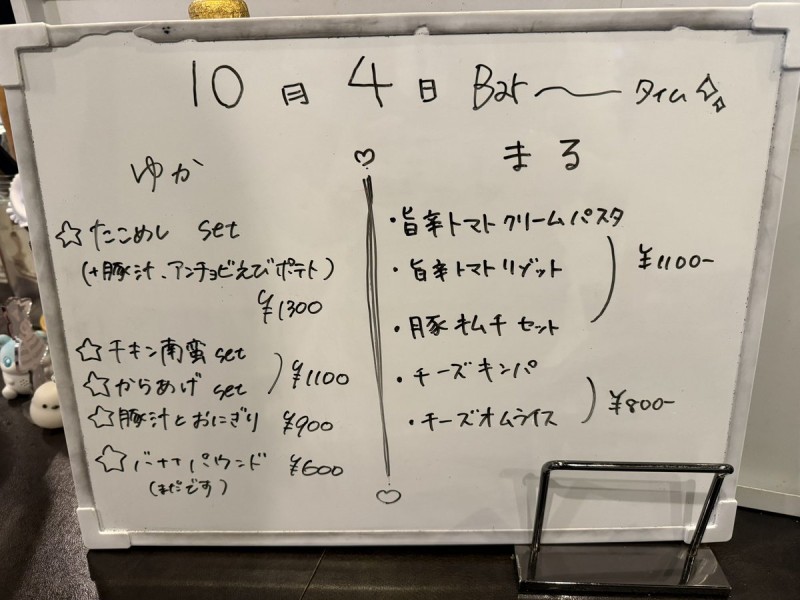 10月4日 Bar〜タイム
ゆか
☆たこめし set
(+豚汁、アンチョビえびポテト)
¥1300
☆チキン南蛮 set
☆からあげ set
¥1100
☆豚汁とおにぎり ¥900
☆バナナパウンド ¥600
(まだです)
まる
・旨辛トマトクリームパスタ
・旨辛トマトリゾット
・豚キムチセット
¥1100-
・チーズキンパ
・チーズオムライス
¥800-